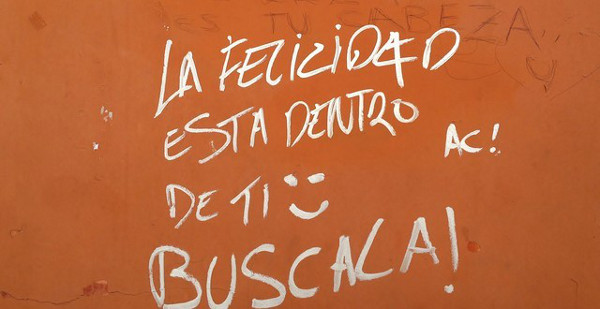 ES TU CABEZA
LA FELICIDAD
ESTA DENTRO
AC!
DE TI
BUSCALA!